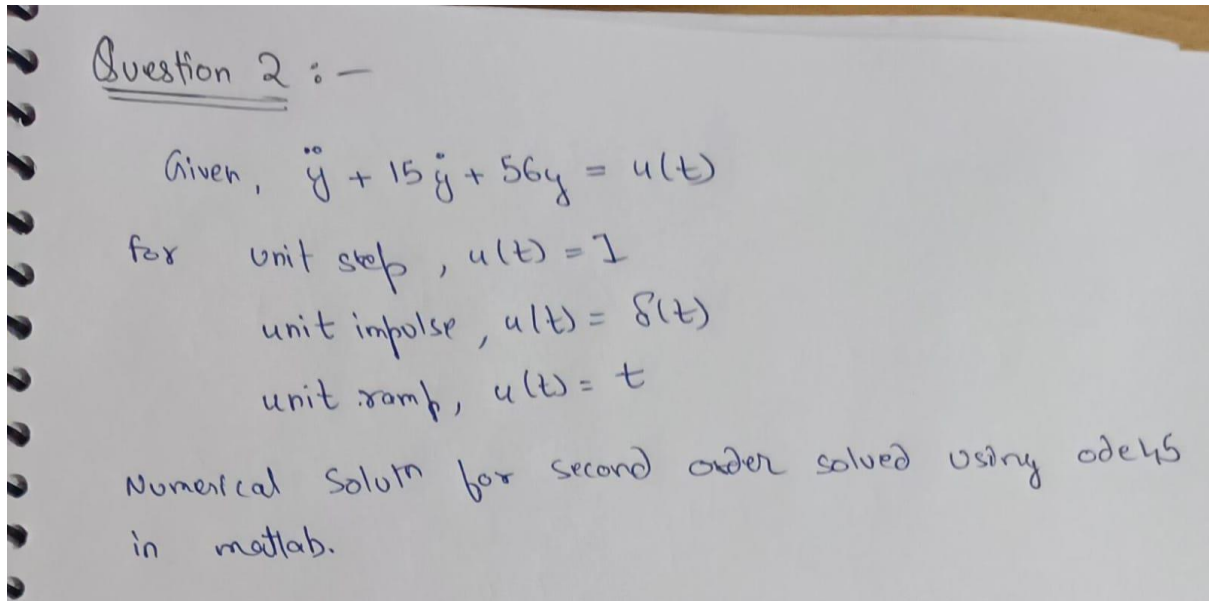 Question 2 :-
Given, ÿ + 15ẏ + 56y = u(t)
for unit step, u(t) = 1
unit impulse, u(t) = δ(t)
unit ramp, u(t) = t
Numerical Solutn for second order solved using ode45
in matlab.